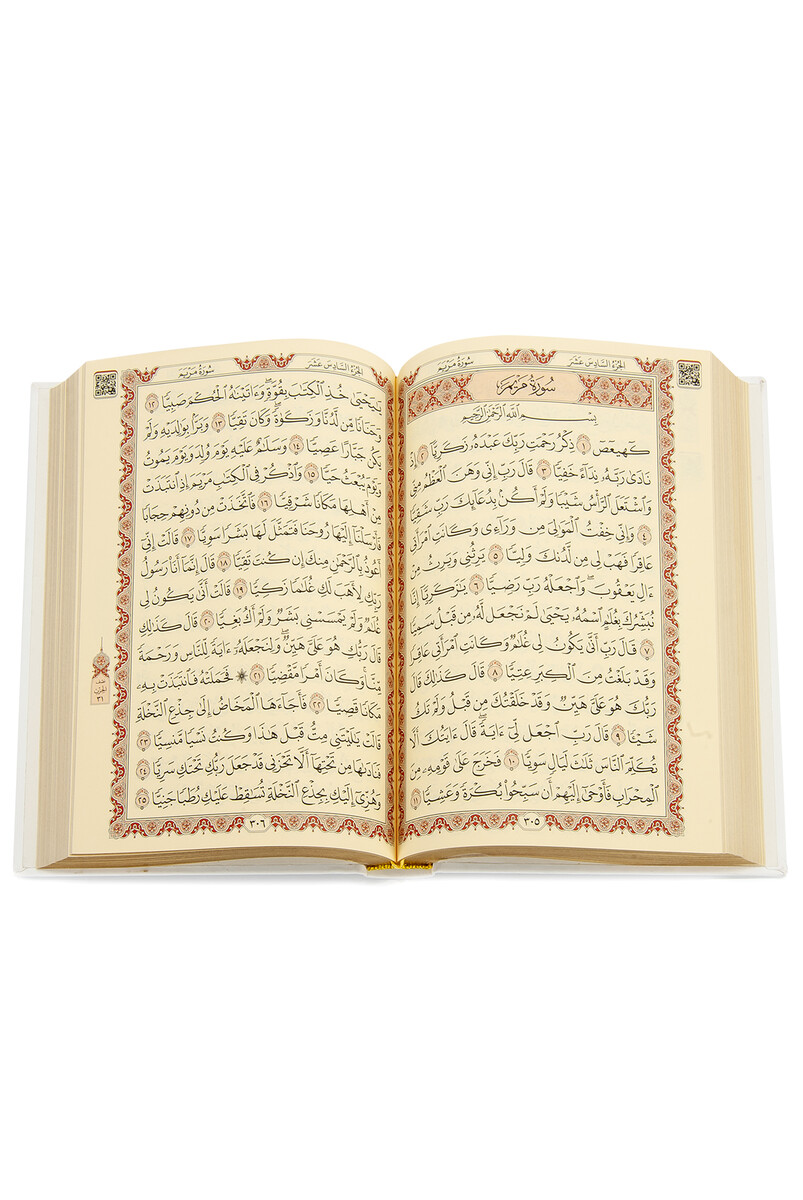 الجزء السادس عشر
سورة مريم
سُورَةُ مَرْيَم
بِسْمِ ٱللَّهِ ٱلرَّحْمَٰنِ ٱلرَّحِيمِ
كٓهيعٓصٓ ١ ذِكْرُ رَحْمَتِ رَبِّكَ عَبْدَهُۥ زَكَرِيَّآ ٢ إِذْ
نَادَىٰ رَبَّهُۥ نِدَآءً خَفِيًّا ٣ قَالَ رَبِّ إِنِّي وَهَنَ ٱلْعَظْمُ مِنِّي
وَٱشْتَعَلَ ٱلرَّأْسُ شَيْبًا وَلَمْ أَكُنۢ بِدُعَآئِكَ رَبِّ شَقِيًّا
٤ وَإِنِّي خِفْتُ ٱلْمَوَٰلِيَ مِن وَرَآءِي وَكَانَتِ ٱمْرَأَتِي
عَاقِرًا فَهَبْ لِي مِن لَّدُنكَ وَلِيًّا ٥ يَرِثُنِي وَيَرِثُ مِنْ
ءَالِ يَعْقُوبَ ۖ وَٱجْعَلْهُ رَبِّ رَضِيًّا ٦ يَٰزَكَرِيَّآ إِنَّا
نُبَشِّرُكَ بِغُلَٰمٍ ٱسْمُهُۥ يَحْيَىٰ لَمْ نَجْعَل لَّهُۥ مِن قَبْلُ سَمِيًّا
٧ قَالَ رَبِّ أَنَّىٰ يَكُونُ لِي غُلَٰمٌ وَكَانَتِ ٱمْرَأَتِي عَاقِرًا
وَقَدْ بَلَغْتُ مِنَ ٱلْكِبَرِ عِتِيًّا ٨ قَالَ كَذَٰلِكَ قَالَ
رَبُّكَ هُوَ عَلَيَّ هَيِّنٌ وَقَدْ خَلَقْتُكَ مِن قَبْلُ وَلَمْ تَكُ
شَيْـًٔا ٩ قَالَ رَبِّ ٱجْعَل لِّيٓ ءَايَةً ۚ قَالَ ءَايَتُكَ أَلَّا
تُكَلِّمَ ٱلنَّاسَ ثَلَٰثَ لَيَالٍ سَوِيًّا ١٠ فَخَرَجَ عَلَىٰ قَوْمِهِۦ مِنَ
ٱلْمِحْرَابِ فَأَوْحَىٰٓ إِلَيْهِمْ أَن سَبِّحُوا۟ بُكْرَةً وَعَشِيًّا ١١
٣٠٥
الجزء السادس عشر
سورة مريم
يَٰيَحْيَىٰ خُذِ ٱلْكِتَٰبَ بِقُوَّةٍ ۖ وَءَاتَيْنَٰهُ ٱلْحُكْمَ صَبِيًّا ١٢
وَحَنَانًا مِّن لَّدُنَّا وَزَكَوٰةً ۖ وَكَانَ تَقِيًّا ١٣ وَبَرًّۢا بِوَٰلِدَيْهِ وَلَمْ
يَكُن جَبَّارًا عَصِيًّا ١٤ وَسَلَٰمٌ عَلَيْهِ يَوْمَ وُلِدَ وَيَوْمَ يَمُوتُ
وَيَوْمَ يُبْعَثُ حَيًّا ١٥ وَٱذْكُرْ فِي ٱلْكِتَٰبِ مَرْيَمَ إِذِ ٱنتَبَذَتْ
مِنْ أَهْلِهَا مَكَانًا شَرْقِيًّا ١٦ فَٱتَّخَذَتْ مِن دُونِهِمْ حِجَابًا
فَأَرْسَلْنَآ إِلَيْهَا رُوحَنَا فَتَمَثَّلَ لَهَا بَشَرًا سَوِيًّا ١٧ قَالَتْ إِنِّيٓ
أَعُوذُ بِٱلرَّحْمَٰنِ مِنكَ إِن كُنتَ تَقِيًّا ١٨ قَالَ إِنَّمَآ أَنَا۠ رَسُولُ
رَبِّكِ لِأَهَبَ لَكِ غُلَٰمًا زَكِيًّا ١٩ قَالَتْ أَنَّىٰ يَكُونُ لِي
غُلَٰمٌ وَلَمْ يَمْسَسْنِي بَشَرٌ وَلَمْ أَكُ بَغِيًّا ٢٠ قَالَ كَذَٰلِكِ
قَالَ رَبُّكِ هُوَ عَلَيَّ هَيِّنٌ ۖ وَلِنَجْعَلَهُۥٓ ءَايَةً لِّلنَّاسِ وَرَحْمَةً
مِّنَّا ۚ وَكَانَ أَمْرًا مَّقْضِيًّا ٢١ ۞ فَحَمَلَتْهُ فَٱنتَبَذَتْ بِهِۦ
مَكَانًا قَصِيًّا ٢٢ فَأَجَآءَهَا ٱلْمَخَاضُ إِلَىٰ جِذْعِ ٱلنَّخْلَةِ
قَالَتْ يَٰلَيْتَنِي مِتُّ قَبْلَ هَٰذَا وَكُنتُ نَسْيًا مَّنسِيًّا ٢٣
فَنَادَىٰهَا مِن تَحْتِهَآ أَلَّا تَحْزَنِي قَدْ جَعَلَ رَبُّكِ تَحْتَكِ سَرِيًّا ٢٤
وَهُزِّيٓ إِلَيْكِ بِجِذْعِ ٱلنَّخْلَةِ تُسَٰقِطْ عَلَيْكِ رُطَبًا جَنِيًّا ٢٥
نصف
الحزب
٣١
٣٠٦